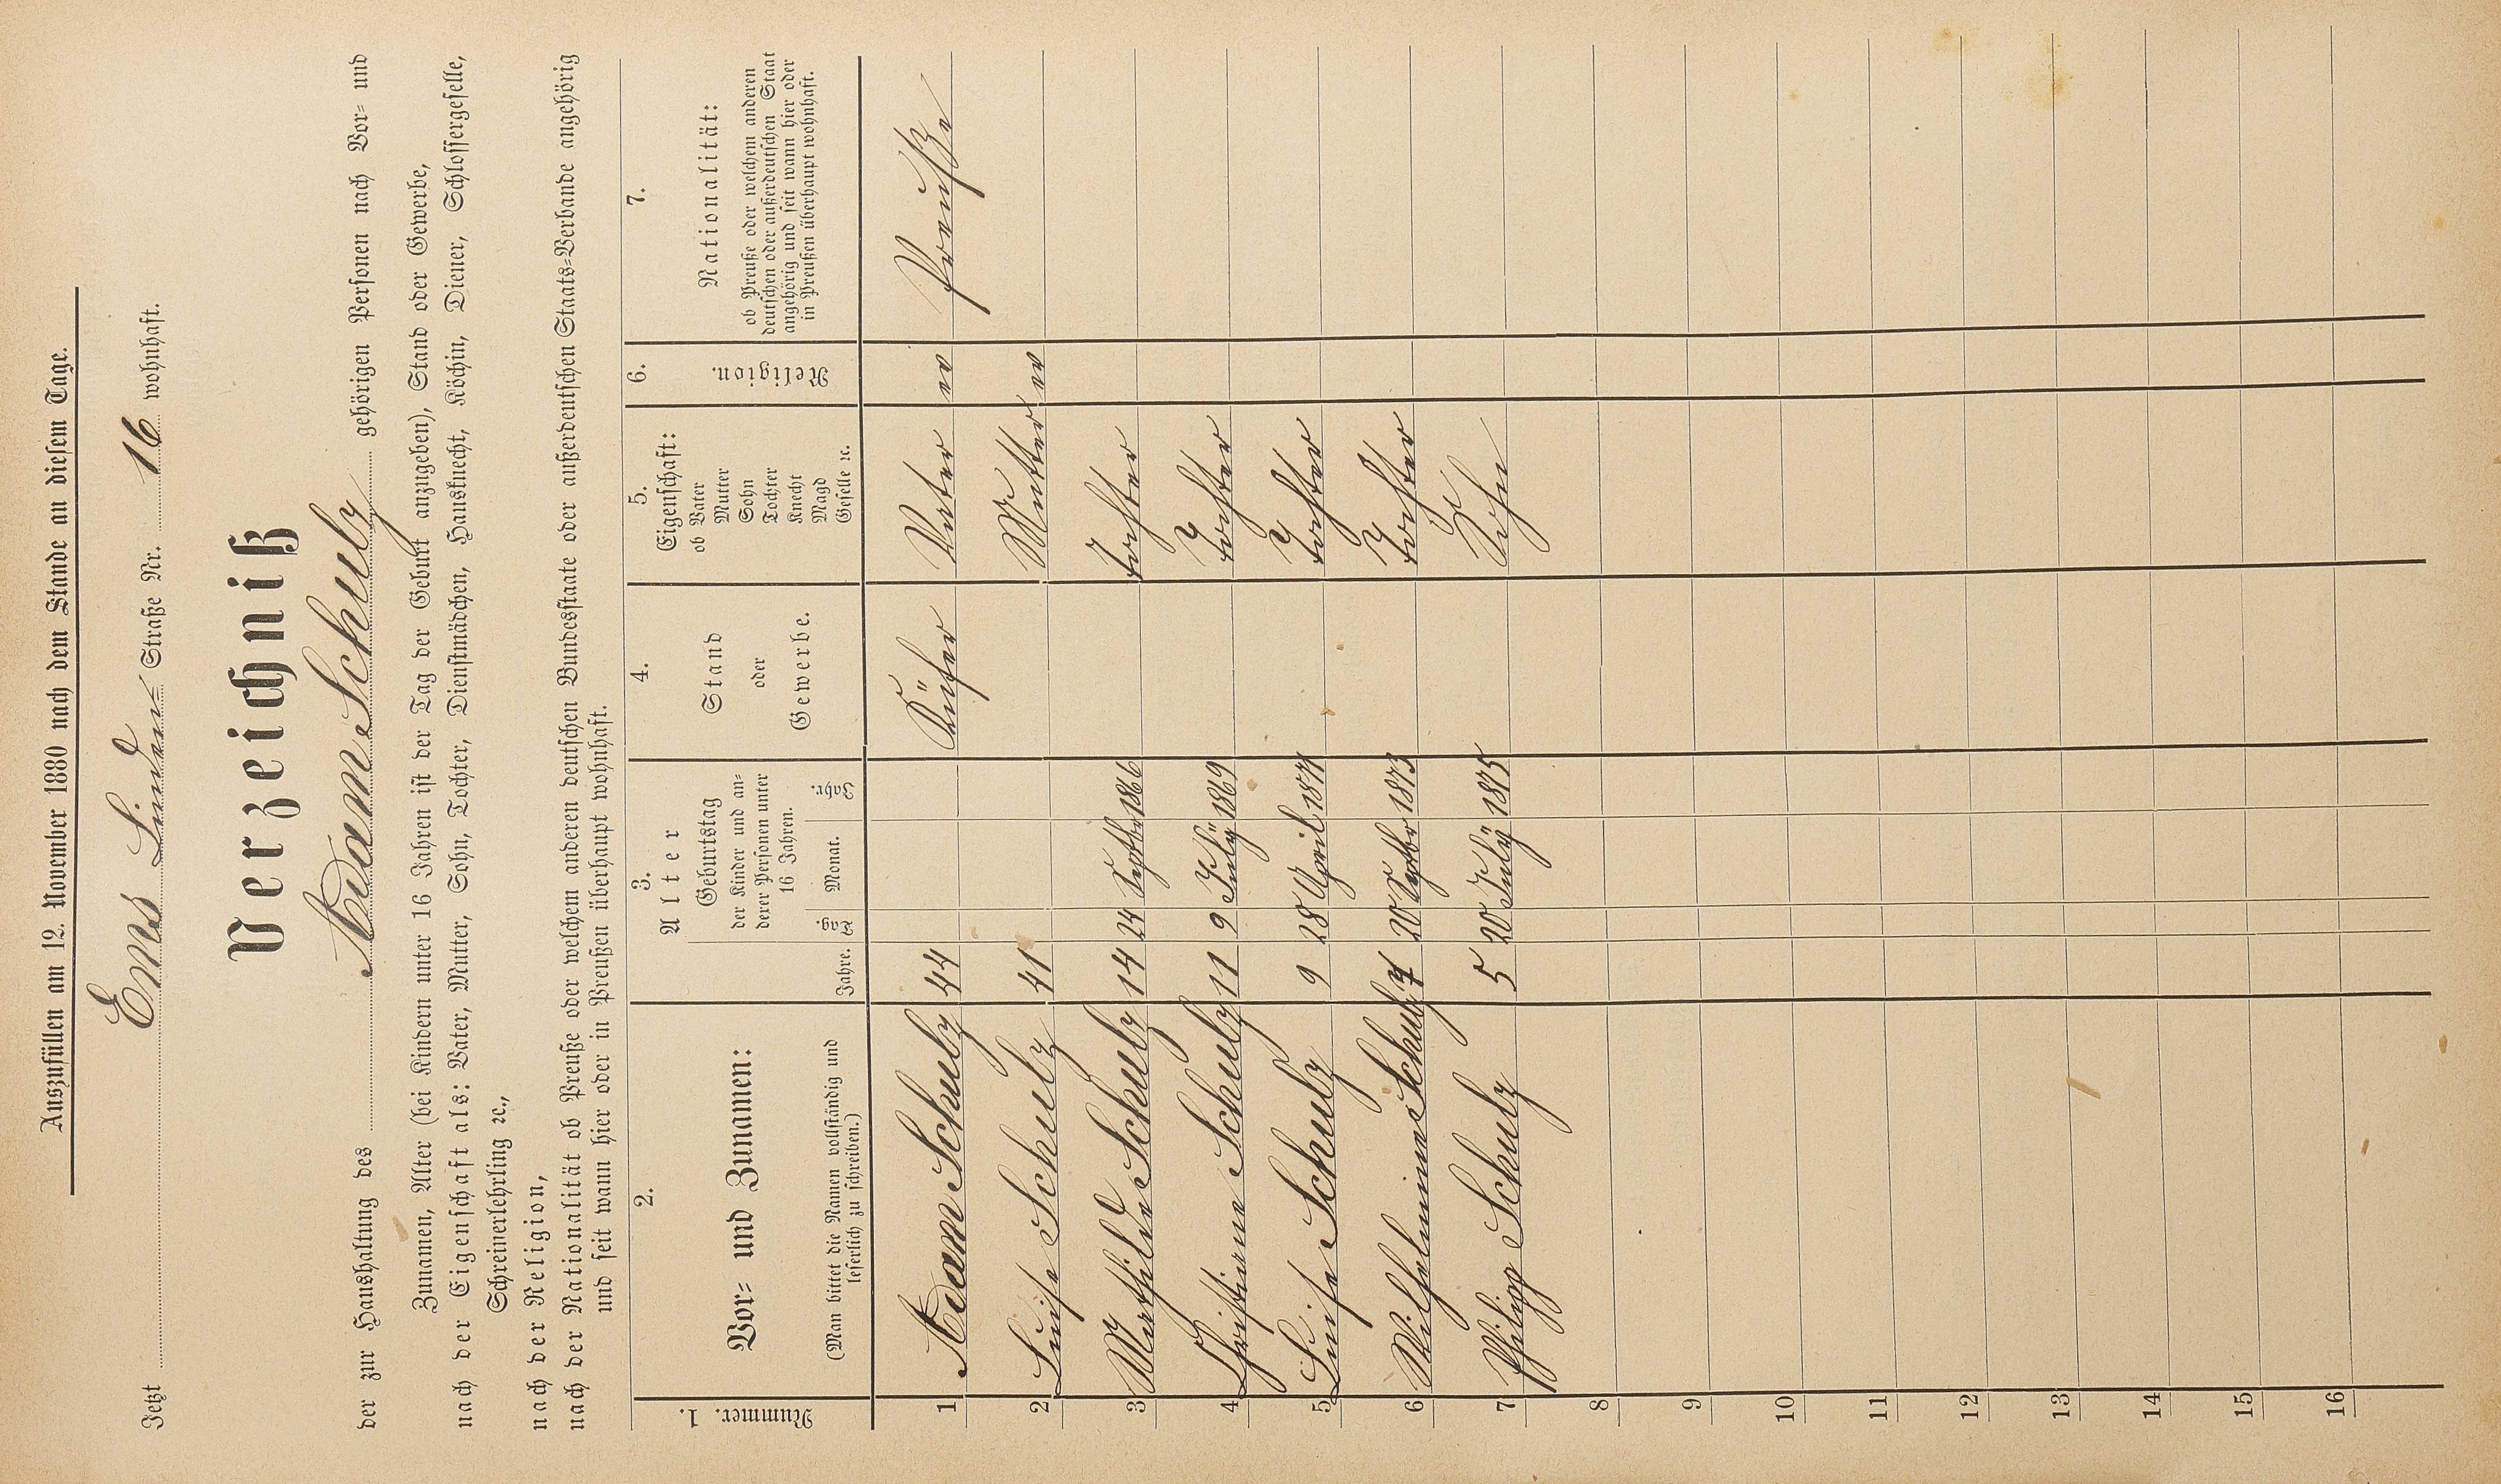 Auszufüllen am 12. November 1880 nach dem Stande an diesem Tage.
Jetzt Ems Linden= Straße Nr. 16 wohnhaft.
Verzeichniß
der zur Haushaltung des Adam Schulz gehörigen Personen nach Vor= und
Zunamen, Alter (bei Kindern unter 16 Jahren ist der Tag der Geburt anzugeben), Stand oder Gewerbe,
nach der Eigenschaft als: Vater, Mutter, Sohn, Tochter, Dienstmädchen, Hausknecht, Köchin, Diener, Schlossergeselle,
Schreinerlehrling ꝛc.,
nach der Religion,
nach der Nationalität ob Preuße oder welchem anderen deutschen Bundesstaate oder außerdeutschen Staats=Verbande angehörig
und seit wann hier oder in Preußen überhaupt wohnhaft.
1. Nummer.
2.
Vor= und Zunamen:
(Man bittet die Namen vollständig und
leserlich zu schreiben.)
3.
Alter
Jahre.
Geburtstag
der Kinder und an=
derer Personen unter
16 Jahren.
Tag. Monat. Jahr.
4.
Stand
oder
Gewerbe.
5.
Eigenschaft:
ob Vater
Mutter
Sohn
Tochter
Knecht
Magd
Geselle ꝛc.
6.
Religion.
7.
Nationalität:
ob Preuße oder welchem anderen
deutschen oder außerdeutschen Staat
angehörig und seit wann hier oder
in Preußen überhaupt wohnhaft.
1 Adam Schulz 44 Küfer Vater ev Preuße
2 Luise Schulz 41 Mutter ev
3 Mathilde Schulz 14 24 Septbr 1866 Tochter
4 Christiane Schulz 11 9 Julÿ 1869 Tochter
5 Luise Schulz 9 28 April 1871 Tochter
6 Wilhelmine Schulz 7 20 Septbr 1873 Tochter
7 Philipp Schulz 5 20 Julÿ 1875 Sohn
8
9
10
11
12
13
14
15
16